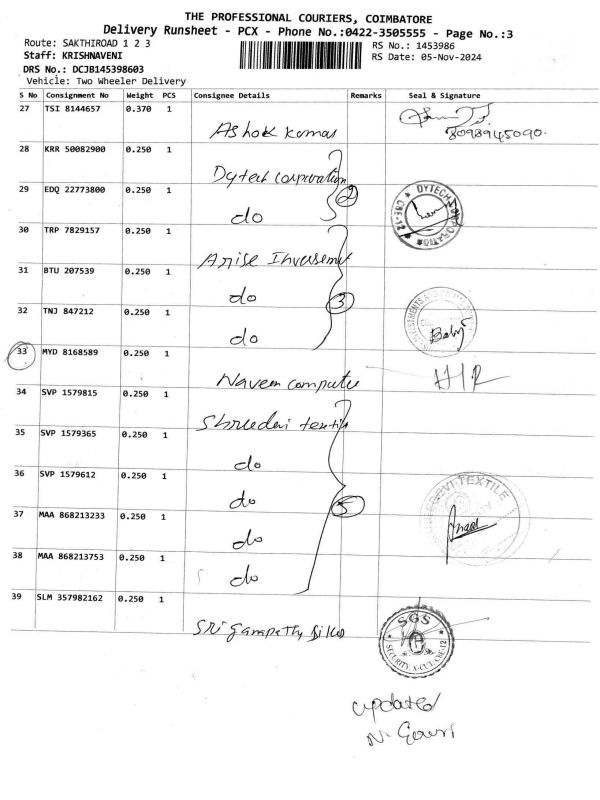 THE PROFESSIONAL COURIERS, COIMBATORE
Delivery Runsheet - PCX - Phone No.:0422-3505555 - Page No.:3
Route: SAKTHIROAD 1 2 3
RS No.: 1453986
Staff: KRISHNAVENI
RS Date: 05-Nov-2024
DRS No.: DCJB145398603
Vehicle: Two Wheeler Delivery
S No Consignment No Weight PCS Consignee Details Remarks Seal & Signature
27 TSI 8144657 0.370 1
Ashok kumar
8098945090.
28 KRR 50082900 0.250 1
Dytech corporation
29 EDQ 22773800 0.250 1
do
2
DYTECH CORPORATION
CBE-12
30 TRP 7829157 0.250 1
Arise
31 BTU 207539 0.250 1
do
3
32 TNJ 847212 0.250 1
do
Baby
33 MYD 8168589 0.250 1
Naveen
34 SVP 1579815 0.250 1
textile
35 SVP 1579365 0.250 1
do
36 SVP 1579612 0.250 1
do
5
37 MAA 868213233 0.250 1
do
TEXTILE
38 MAA 868213753 0.250 1
do
39 SLM 357982162 0.250 1
Sri Ganapathy
SGS
SECURITY
updated
N. Gowri